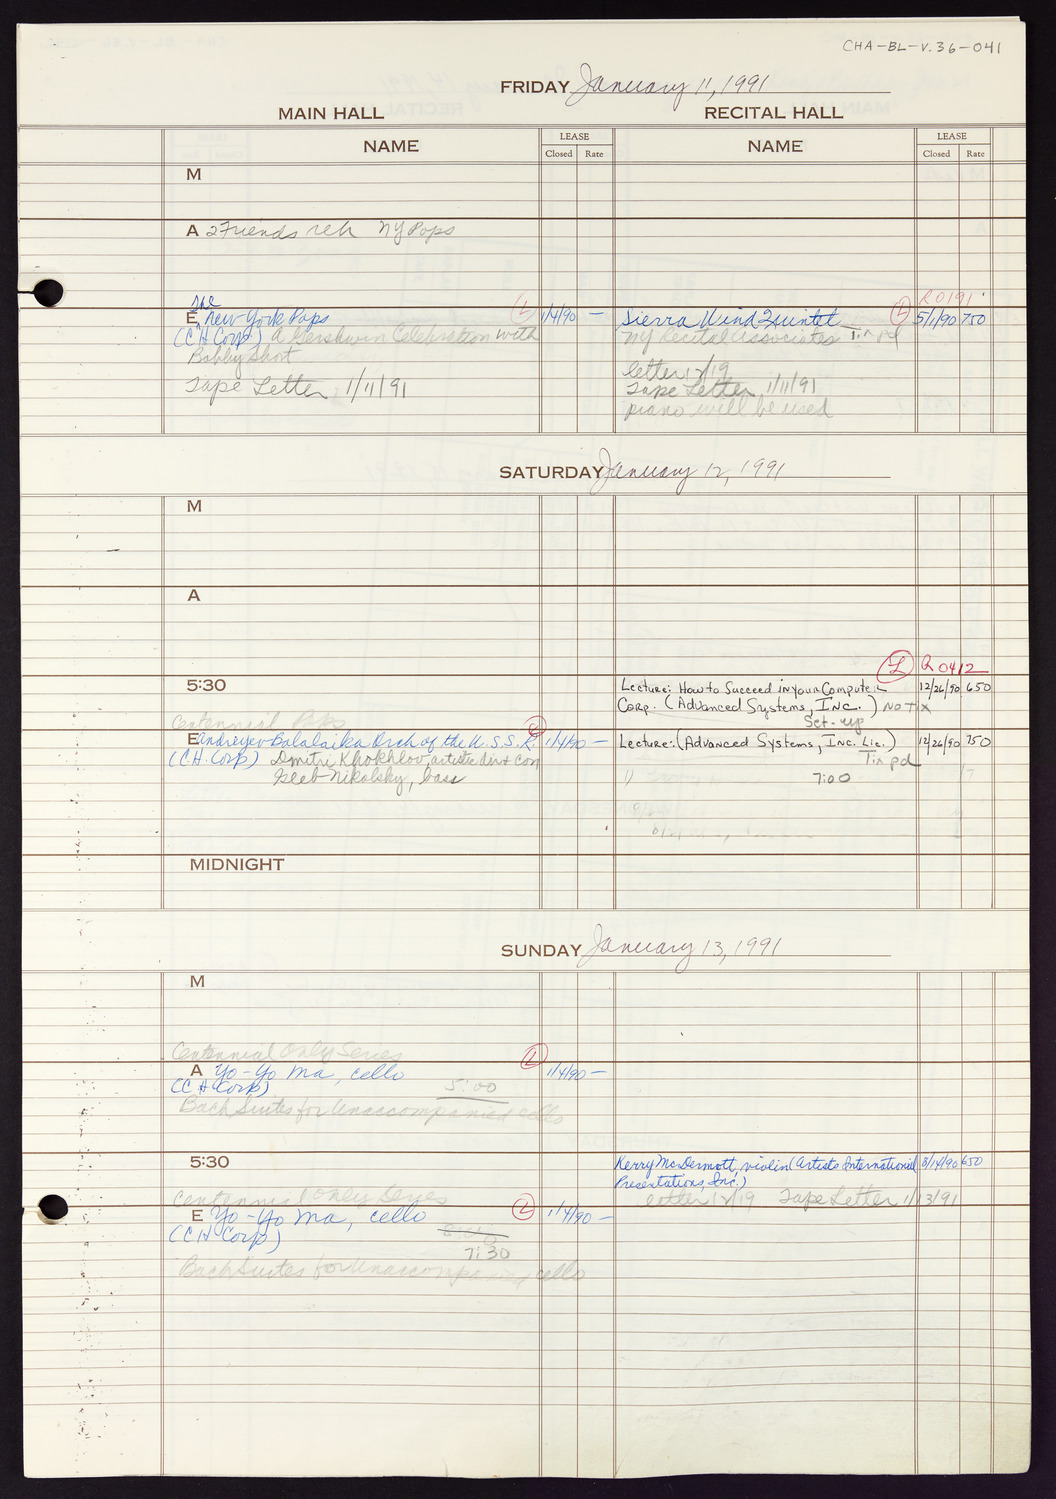 CHA-BL-V.36-041
FRIDAY January 11, 1991
MAIN HALL RECITAL HALL
NAME LEASE Closed Rate NAME LEASE Closed Rate
M
A 2 Friends reh NY Pops
R0191
The
E New York Pops L 1/4/90 —
(CH Corp) A Gershwin Celebration with
Bobby Short
Tape Letter 1/11/91
Sierra Wind Quintet L 5/1/90 750
NY Recital Associates Tix pd
letter 12/19
Tape Letter 1/11/91
piano will be used
SATURDAY January 12, 1991
M
A
L R0412
5:30
Lecture: How to Succeed in your Computer 12/26/90 650
Corp. (Advanced Systems, Inc.) No Tix
Set-up
Centennial Pops
E Andreyev Balalaika Orch of the U.S.S.R. L 1/4/90 —
(CH Corp) Dmitri Khokhlov, artistic dir & con
Gleb Nikolsky, bass
Lecture: (Advanced Systems, Inc. Lic.) 12/26/90 750
Tix pd
7:00
MIDNIGHT
SUNDAY January 13, 1991
M
Centennial Only Series
A Yo-Yo Ma, cello L 1/4/90 —
(CH Corp) 5:00
Bach Suites for Unaccompanied cello
5:30
Kerry McDermott, violin (Artists International 8/14/90 650
Presentations, Inc.)
letter 12/19 Tape Letter 1/13/91
Centennial Only Series
E Yo-Yo Ma, cello L 1/4/90 —
(CH Corp)
7:30
Bach Suites for Unaccompanied cello